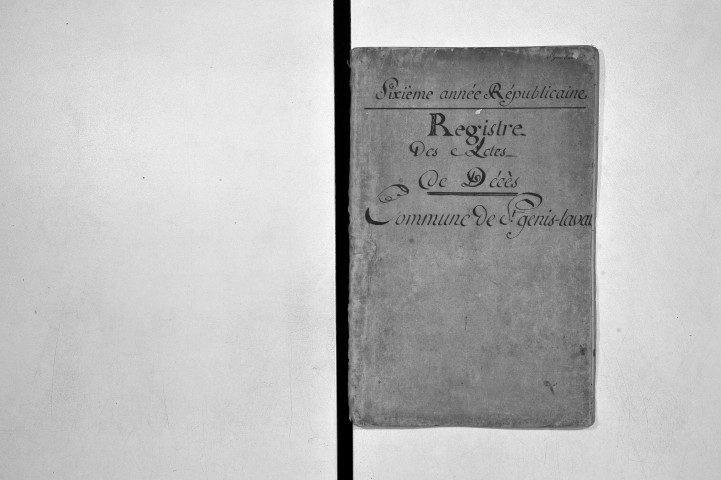 Sixième année Républicaine
Registre
Des Actes
de Décès
Commune de St genis-laval